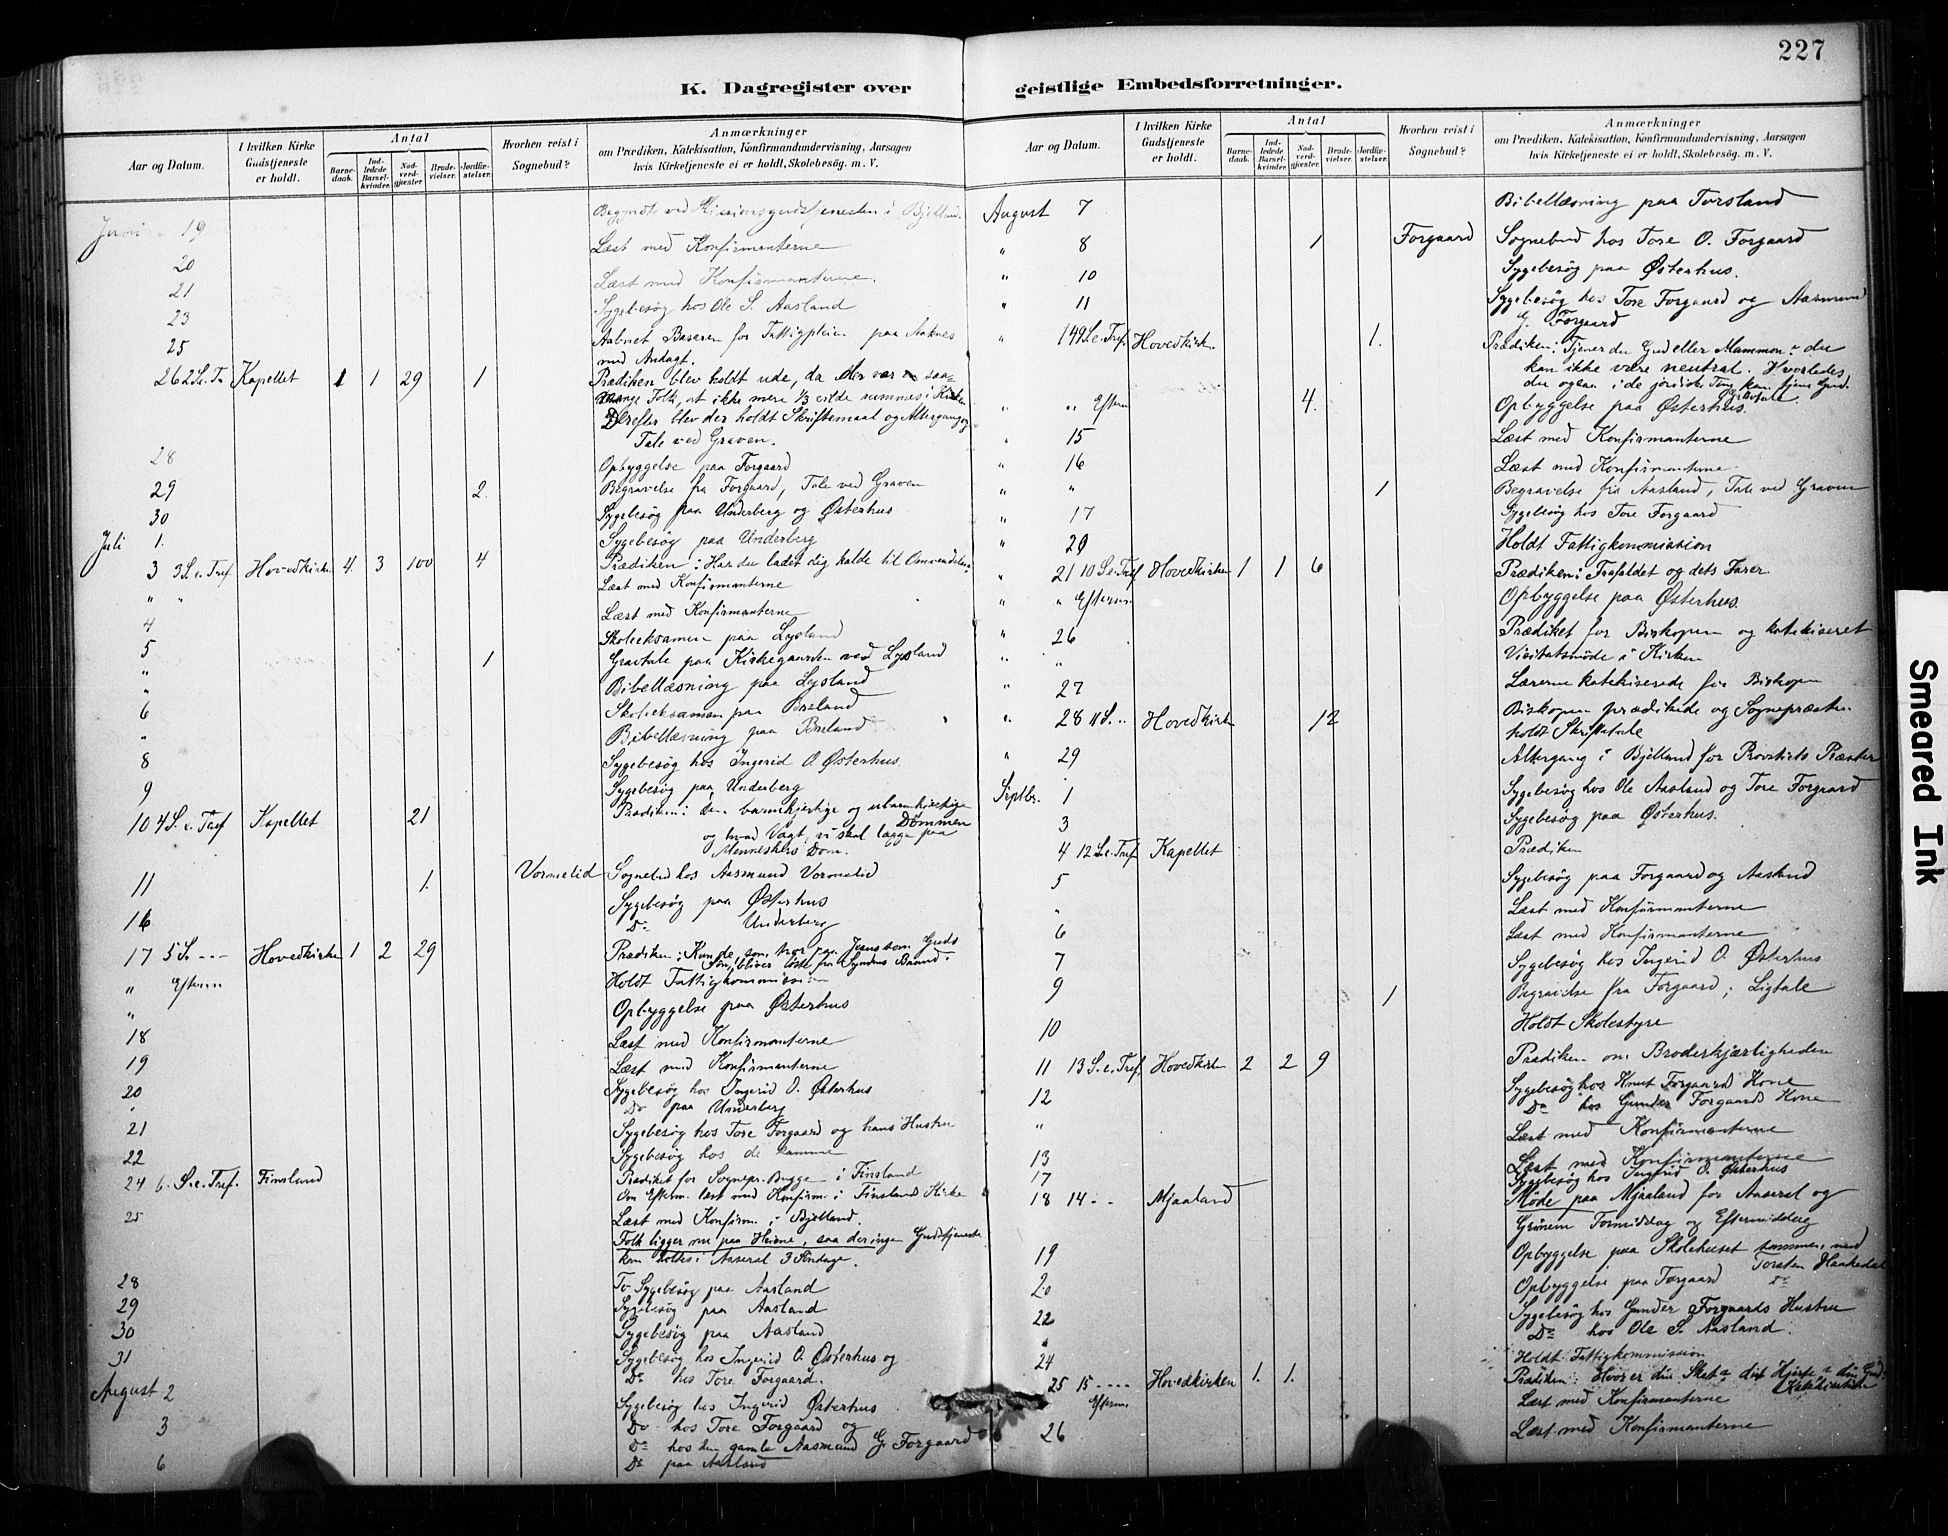 227
K. Dagregister over geistlige Embedsforretninger.
Aar og Datum.
I hvilken Kirke Gudstjeneste er holdt.
Antal
Barnedaab.
Indledede Barselkvinder.
Nadverdgjæster
Brudevielser.
Jordfæstelser.
Hvorhen reist i Sognebud?
Anmærkninger
om Prædiken, Katekisation, Konfirmandundervisning, Aarsagen
hvis Kirketjeneste ei er holdt, Skolebesøg. m. V.
Juni 19 Begyndte ved Missionsgudstjenesten i Bjelland.
Læst med Konfirmanterne
20 Læst med Konfirmanterne.
21 Sygebesøg hos Ole S. Aasland
23
25 Aabnet Basaren for Fattigpleien paa Aaknes
med Andagt.
26 2 S. e. Tr Kapellet 1 1 29 1 Prædiken blev holdt ude, da der var saa
mange Folk, at ikke mere 1/3 vilde rummes i Kirken
Derefter blev der holdt Skriftemaal og Altergang og
Tale ved Graven.
28 Opbyggelse paa Forgaard
29 2. Begravelse fra Forgaard, Tale ved Graven
30 Sygebesøg paa Underberg og Østerhus
Juli 1. Sygebesøg paa Underberg
3 3 S. e. Tref Hovedkirken 4. 3 100 4 Prædiken: Har du ladet dig kalde til Omvendelse?
" " Læst med Konfirmanterne
4 Læst med Konfirmanterne
5 Skoleeksamen paa Lysland
" 1 Gravtale paa Kirkegaarden ved Lysland
" Bibellæsning paa Lysland
6 Skoleeksamen paa Breland
" Bibellæsning paa Breland
8 Sygebesøg hos Ingerid O. Østerhus.
9 Sygebesøg paa Underberg
10 4 S. e. Tref Kapellet 21 Prædiken: Den barmhjertige og ubarmhjertige
Dømmen
og hvad Vægt, vi skal lægge paa
Menneskers Dom.
11 1. Vormelid Sognebud hos Aasmund Vormelid
16 Sygebesøg paa Østerhus
Do Underberg
17 5 S. - - - Hovedkirken 1 2 29 Prædiken: Kun de, som tror paa Jesus som Guds
Søn, bliver løste fra Syndens Baand.
" Efterm Holdt Fattigkommission
" Opbyggelse paa Østerhus
18 Læst med Konfirmanterne
19 Læst med Konfirmanterne
20 Sygebesøg hos Ingerid O. Østerhus
" Do paa Underberg
21 Sygebesøg hos Tore Forgaard og hans Hustru
22 Sygebesøg hos de samme
24 6. S. e. Tref. Finsland Prædiket for Sognepr. Bugge i Finsland
Om Efterm. læst med Konfirm. i Finsland Kirke
25 Læst med Konfirm. i Bjelland.
Folk ligger nu paa Heiene, saa der ingen Gudstjeneste
kan holdes i Aaseral 3 Søndage.
28 To Sygebesøg paa Aasland
29 Sygebesøg paa Aasland
30 Sygebesøg paa Aasland
31 Sygebesøg hos Ingerid O. Østerhus og
Do hos Tore Forgaard.
August 2 Sygebesøg hos Ingerid Østerhus
3 Do hos Tore Forgaard og
Do hos den gamle Aasmund G. Forgaard
6 Do paa Aasland
Aar og Datum.
I hvilken Kirke Gudstjeneste er holdt.
Antal
Barnedaab.
Indledede Barselkvinder.
Nadverdgjæster
Brudevielser.
Jordfæstelser.
Hvorhen reist i Sognebud?
Anmærkninger
om Prædiken, Katekisation, Konfirmandundervisning, Aarsagen
hvis Kirketjeneste ei er holdt, Skolebesøg. m. V.
August 7 Bibellæsning paa Forsland
" 8 1 Forgaard Sognebud hos Tore O. Forgaard
" 10 Sygebesøg paa Østerhus.
" 11 Sygebesøg hos Tore Forgaard og Aasmund
G. Forgaard
" 14 9 S. e. Tref. Hovedkirken 1. Prædiken: Tjener du Gud eller Mammon? du
kan ikke være neutral. Hvorledes
du ogsaa i de jordiske Ting kan tjene Gud.
Gravtale
" " Efterm 4. Opbyggelse paa Østerhus.
" 15 Læst med Konfirmanterne
" 16 Læst med Konfirmanterne.
" " 1 Begravelse fra Aasland, Tale ved Graven
" 17 Sygebesøg hos Tore Forgaard
" 20 Holdt Fattigkommission
" 21 10 S. e. Tref Hovedkirken 1 1 6 Prædiken: Frafaldet og dets Farer
" " Efterm Opbyggelse paa Østerhus.
" 26 Prædiket for Biskopen og katekiseret
" " Visitatsmøde i Kirken
" 27 Lærerne katekiserede for Biskopen
" 28 11 S. " Hovedkirken 12 Biskopen prædikede og Sognepræsten
holdt Skriftetale
" 29 Altergang i Bjelland for Provstiets Præster
Septbr. 1 Sygebesøg hos Ole Aasland og Tore Forgaard
3 Sygebesøg paa Østerhus.
4 12 S. e. Tref Kapellet Prædiken
5 Sygebesøg paa Forgaard og Aasland
" Læst med Konfirmanterne
6 Læst med Konfirmanterne
7 Sygebesøg hos Ingerid O. Østerhus
9 1 Begravelse fra Forgaard; Ligtale
10 Holdt Skolestyre
11 13 S. e. Tref. Hovedkirken 2 2 9 Prædiken om Broderkjærligheden
12 Sygebesøg hos Knut Forgaards Kone
Do hos Gunder Forgaards Kone
" Læst med Konfirmanterne
13 Læst med Konfirmanterne
17 Sygebesøg hos Ingerid O. Østerhus
18 14 - - Mjaaland Møde paa Mjaaland for Aaseral og
Grinem Formiddag og Eftermiddag
19 Opbyggelse paa Skolehuset sammen med
Torsten Haakedal
20 Opbyggelse paa Forgaard Do
22 Sygebesøg hos Gunder Forgaards Hustru
" Do hos Ole S. Aasland.
24 Holdt Fattigkommission
25 15 - - - - Hovedkirken 1. 1. Prædiken: Hvor er din Skat? dit Hjerte? din Gud?
Katekisation
Efterm Læst med Konfirmanterne
26 Læst med Konfirmanterne
Smeared Ink